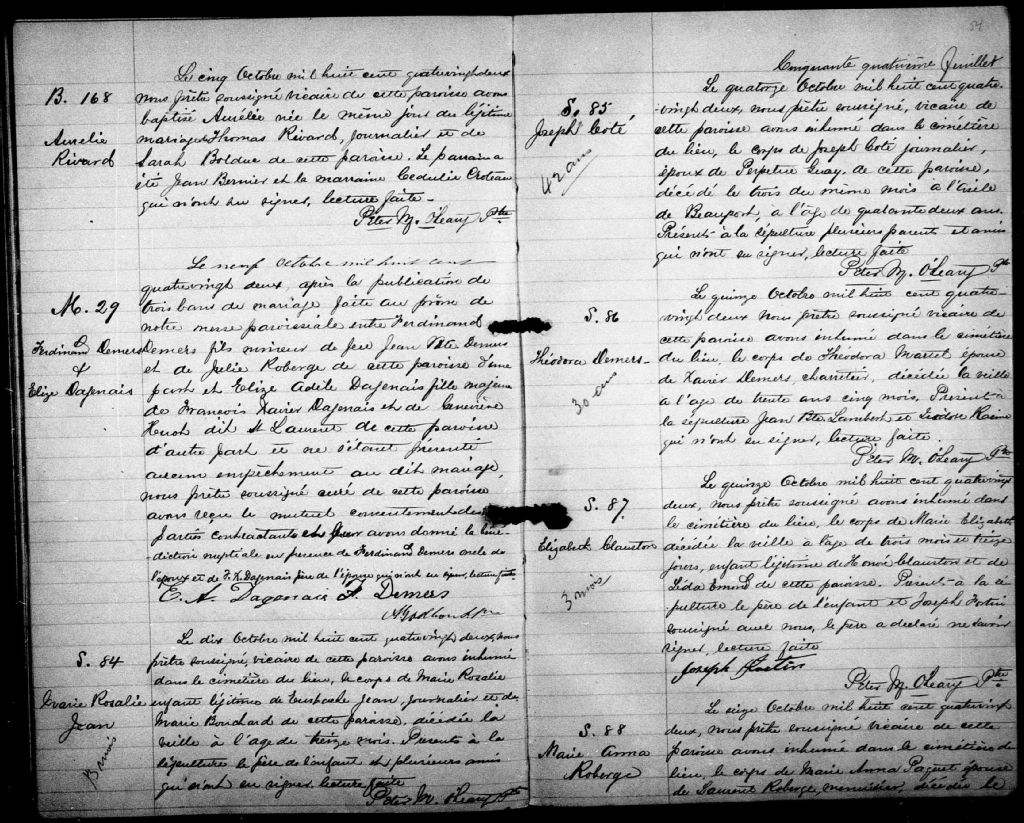 B. 168
Aurélie
Rivard
Le cinq Octobre mil huit cent quatrevingt deux
nous prêtre soussigné vicaire de cette paroisse avons
baptisé Aurélie née le même jour du légitime
mariage de Thomas Rivard, journalier et de
Sarah Bolduc de cette paroisse. Le parrain a
été Jean Bernier et la marraine Cedulie Croteau
qui n'ont su signer, lecture faite.
Peter M. O'Leary Ptre
M. 29
Ferdinand Demers
&
Elize Dagenais
Le neuf Octobre mil huit cent
quatrevingt deux, après la publication de
trois bans de mariage faite au prône de
notre messe paroissiale entre Ferdinand
Demers fils mineur de feu Jean Bte Demers
et de Julie Roberge de cette paroisse d'une
part et Elize Adèle Dagenais fille majeure
de François Xavier Dagenais et de Geneviève
Huot dit St Laurent de cette paroisse
d'autre part et ne s'étant présenté
aucun empêchement au dit mariage,
nous prêtre soussigné curé de cette paroisse
avons reçu le mutuel consentement des
parties contractantes et leur avons donné la béné-
diction nuptiale en présence de Ferdinand Demers oncle de
l'époux et de F. X. Dagenais père de l'épouse qui n'ont su signer, lecture faite
E. A. Dagenais F. Demers
S. 84
Marie Rosalie
Jean
13 mois
Le dix Octobre mil huit cent quatrevingt deux, nous
prêtre soussigné, vicaire de cette paroisse avons inhumé
dans le cimetière du lieu, le corps de Marie Rosalie
enfant légitime de Eustache Jean, journalier et de
Marie Bouchard de cette paroisse, décédée la
veille à l'age de treize mois. Présents à la
sépulture le père de l'enfant et plusieurs amis
qui n'ont su signer, lecture faite
Peter M. O'Leary Ptre
54
Cinquante quatrième feuillet
S. 85
Joseph Coté
42 ans
Le quatorze Octobre mil huit cent quatre-
vingt deux, nous prêtre soussigné, vicaire de
cette paroisse avons inhumé dans le cimetière
du lieu, le corps de Joseph Coté journalier,
époux de Perpetue Guay, de cette paroisse,
décédé le trois du même mois à l'Asile
de Beauport, à l'âge de quarante deux ans.
Présents à la sépulture plusieurs parents et amis
qui n'ont su signer, lecture faite
Peter M. O'Leary Ptre
S. 86
Théodora Demers
30 ans
Le quinze Octobre mil huit cent quatre-
vingt deux nous prêtre soussigné vicaire de
cette paroisse avons inhumé dans le cimetière
du lieu, le corps de Théodora Martel épouse
de Xavier Demers, charretier, décédée la veille
à l'age de trente ans cinq mois. Présent à
la sépulture Jean Bte Lambert et Isidore Racine
qui n'ont su signer, lecture faite.
Peter M. O'Leary Ptre
S. 87.
Elizabeth Clauston
3 mois
Le quinze Octobre mil huit cent quatrevingt
deux, nous prêtre soussigné avons inhumé dans
le cimetière du lieu, le corps de Marie Elizabeth
décédée la veille à l'age de trois mois et treize
jours, enfant légitime de Honoré Clauston et de
Lédia Emond de cette paroisse. Présents à la sé-
pulture le père de l'enfant et Joseph Fortin
soussigné avec nous, le père a déclaré ne savoir
signer, lecture faite
Joseph Fortin
Peter M. O'Leary Ptre
S. 88
Marie Anna
Roberge
Le seize Octobre mil huit cent quatrevingt
deux, nous prêtre soussigné vicaire de cette
paroisse avons inhumé dans le cimetière du
lieu, le corps de Marie Anna Paquet épouse
de Laurent Roberge, menuisier, décédée le